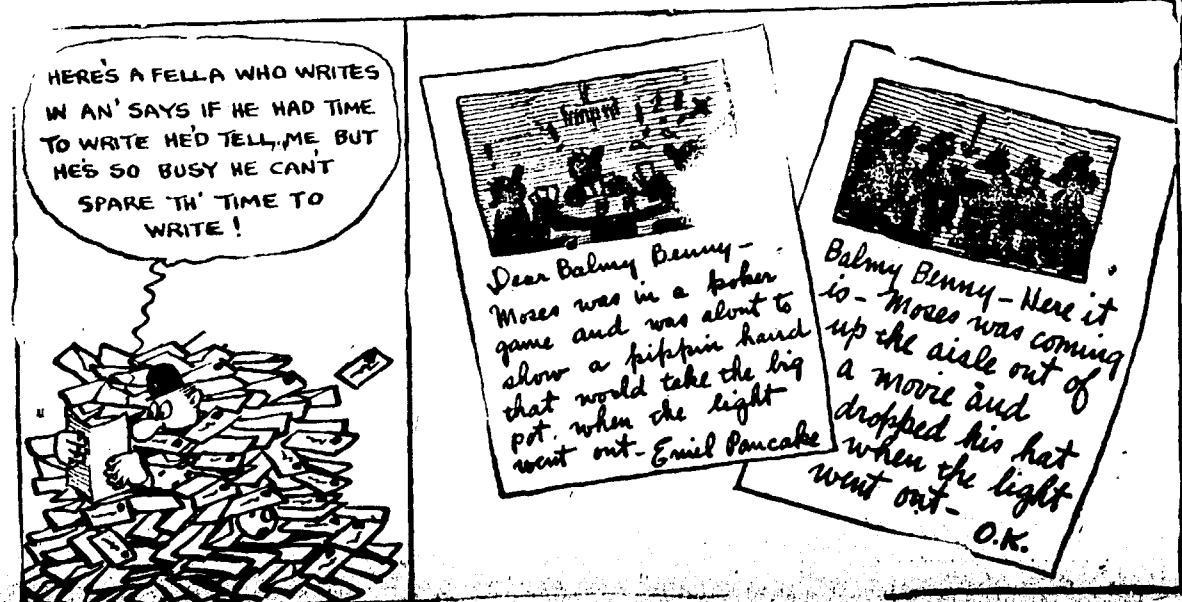 HERE'S A FELLA WHO WRITES
IN AN' SAYS IF HE HAD TIME
TO WRITE HE'D TELL ME BUT
HE'S SO BUSY HE CAN'T
SPARE TH' TIME TO
WRITE!
Dear Balmy Benny—
Moses was in a poker
game and was about to
show a pippin hand
that would take the big
pot. when the light
went out— Emiel Pancake
Balmy Benny— Here it
is— Moses was coming
up the aisle out of
a movie and
dropped his hat
when the light
went out—
O.K.